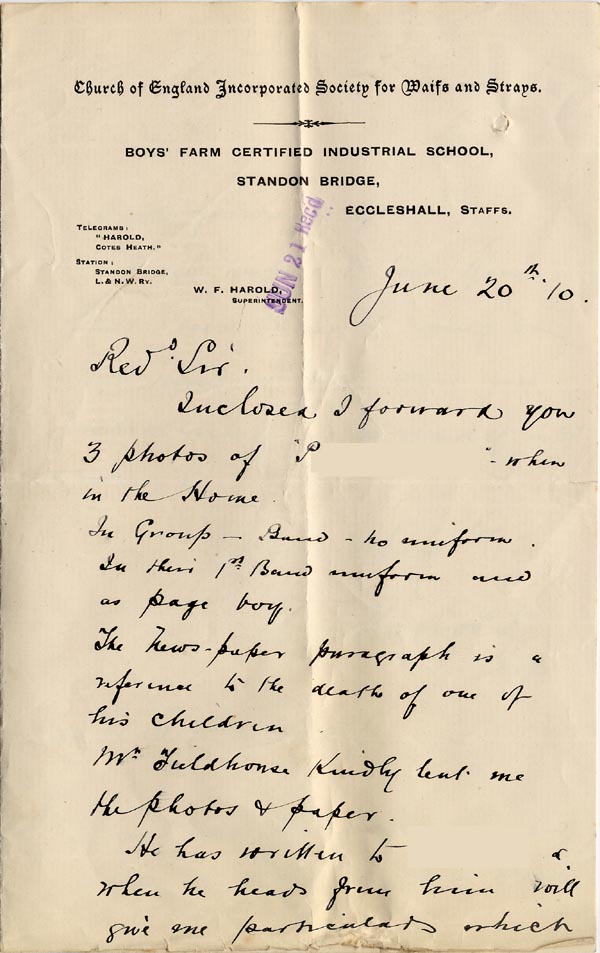 Church of England Incorporated Society for Waifs and Strays.
BOYS' FARM CERTIFIED INDUSTRIAL SCHOOL,
STANDON BRIDGE,
ECCLESHALL, STAFFS.
TELEGRAMS:
"HAROLD,
COTES HEATH."
STATION:
STANDON BRIDGE,
L. & N. W. RY.
W. F. HAROLD,
SUPERINTENDENT.
JUN 21 Recd
June 20th 10.
Revd Sir.
Inclosed I forward you
3 photos of "P " - when
in the Home.
In Group - Band - no uniform.
In their 1st Band uniform and
as page boy.
The News-paper paragraph is a
reference to the death of one of
his children
Mr Fieldhouse kindly lent me
the photos & paper.
He has written to &
when he hears from him will
give me particulars which